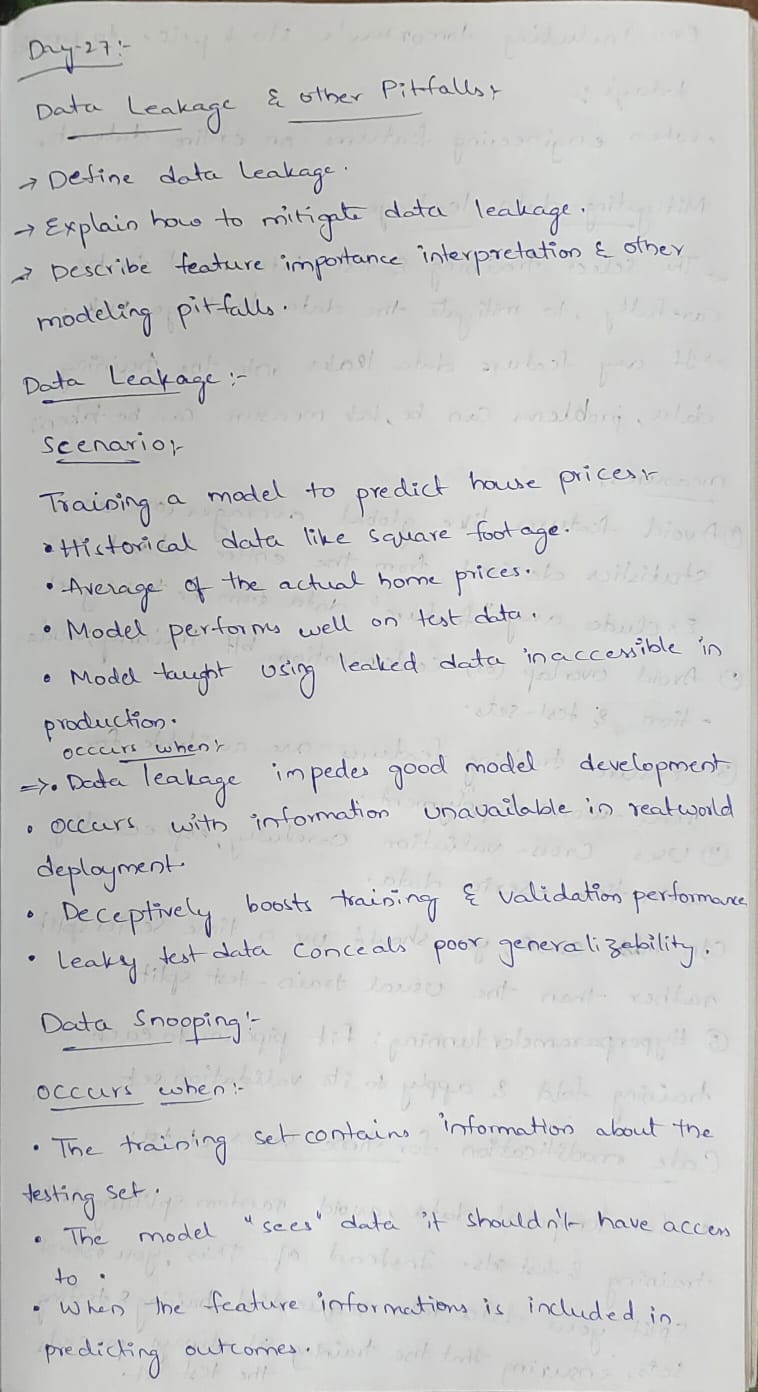 Day-27:-
Data Leakage & other Pitfalls:-
→ Define data leakage.
→ Explain how to mitigate data leakage.
→ Describe feature importance interpretation & other
modeling pitfalls.
Data Leakage:-
Scenario:-
Training a model to predict house prices:-
• Historical data like square footage.
• Average of the actual home prices.
• Model performs well on test data.
• Model taught using leaked data inaccessible in
production.
occurs when:-
=>. Data leakage impedes good model development
• occurs with information unavailable in realworld
deployment.
• Deceptively boosts training & validation performance
• leaky test data conceals poor generalizability.
Data Snooping:-
occurs when:-
• The training set contains information about the
testing set.
• The model "sees" data it shouldn't have access
to.
• When the feature informations is included in
predicting outcomes.